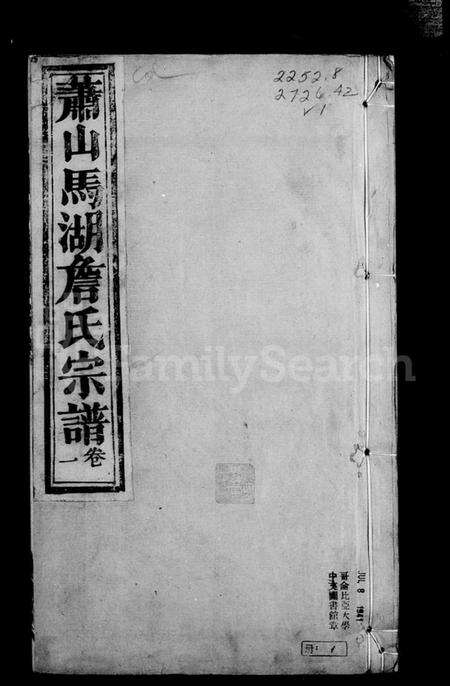 蕭山馬湖詹氏宗譜
卷一
2252.8
2726.42
v1
FamilySearch
哥倫比亞大學
中文圖書館章
JUL 8 1941
冊: 1